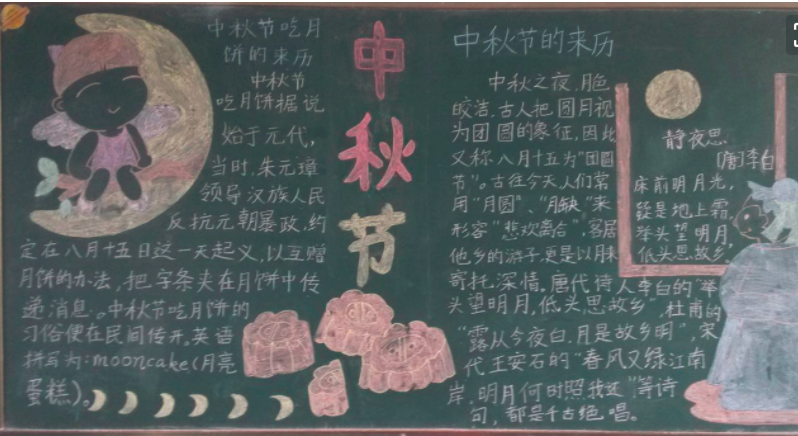 中秋节吃月
饼的来历
中秋节
吃月饼据说
始于元代，
当时，朱元璋
领导汉族人民
反抗元朝暴政，约
定在八月十五日这一天起义，以互赠
月饼的办法，把字条夹在月饼中传
递消息。中秋节吃月饼的
习俗便在民间传开。英语
拼写为：mooncake(月亮
蛋糕)。
中
秋
节
中秋节的来历
中秋之夜，月色
皎洁，古人把圆月视
为团圆的象征，因此
又称八月十五为"团圆
节"。古往今天人们常
用"月圆"、"月缺"来
形容"悲欢离合"，客居
他乡的游子，更是以月来
寄托深情。唐代诗人李白的"举
头望明月，低头思故乡"，杜甫的
"露从今夜白，月是故乡明"，宋
代王安石的"春风又绿江南
岸，明月何时照我还"等诗
句，都是千古绝唱。
静夜思
[唐]李白
床前明月光，
疑是地上霜，
举头望明月，
低头思故乡，